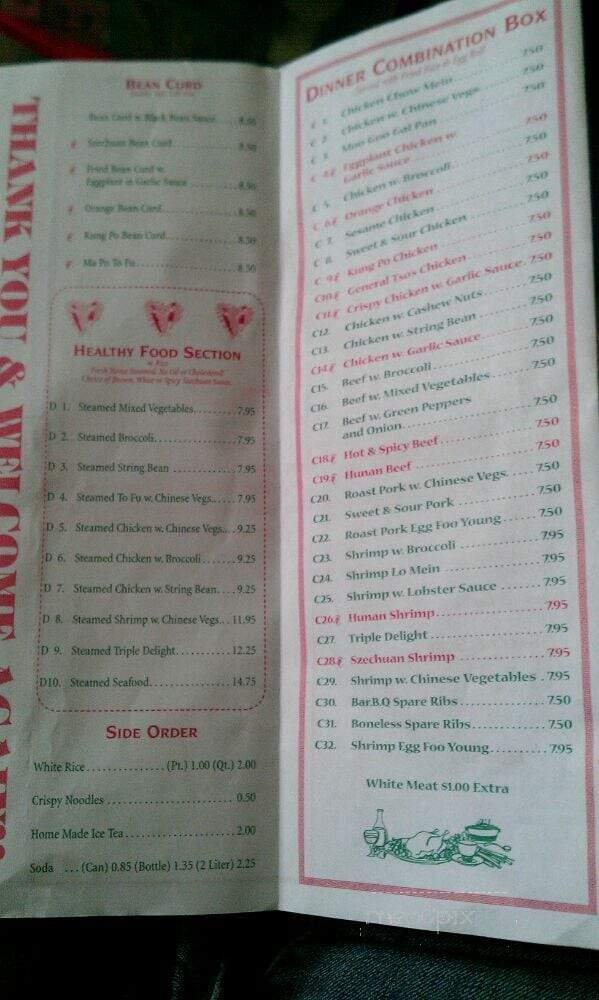 THANK YOU & WELCOME AGAIN!
BEAN CURD
Bean Curd w. Black Bean Sauce ..... 8.50
Szechuan Bean Curd ..... 8.50
Fried Bean Curd w.
Eggplant in Garlic Sauce ..... 8.50
Orange Bean Curd ..... 8.50
Kung Po Bean Curd ..... 8.50
Ma Po To Fu ..... 8.50
HEALTHY FOOD SECTION
w. Rice
Fresh Home Steamed. No Oil or Cholesterol
Choice of Brown, White or Spicy Szechuan Sauce.
D 1. Steamed Mixed Vegetables ..... 7.95
D 2. Steamed Broccoli ..... 7.95
D 3. Steamed String Bean ..... 7.95
D 4. Steamed To Fu w. Chinese Vegs. ..... 7.95
D 5. Steamed Chicken w. Chinese Vegs. ..... 9.25
D 6. Steamed Chicken w. Broccoli ..... 9.25
D 7. Steamed Chicken w. String Bean ..... 9.25
D 8. Steamed Shrimp w. Chinese Vegs. ..... 11.95
D 9. Steamed Triple Delight ..... 12.25
D10. Steamed Seafood ..... 14.75
SIDE ORDER
White Rice ..... (Pt.) 1.00 (Qt.) 2.00
Crispy Noodles ..... 0.50
Home Made Ice Tea ..... 2.00
Soda ... (Can) 0.85 (Bottle) 1.35 (2 Liter) 2.25
DINNER COMBINATION BOX
Served with Fried Rice & Egg Roll
C 1. Chicken Chow Mein ..... 7.50
C 2. Chicken w. Chinese Vegs. ..... 7.50
C 3. Moo Goo Gai Pan ..... 7.50
C 4. Eggplant Chicken w.
Garlic Sauce ..... 7.50
C 5. Chicken w. Broccoli ..... 7.50
C 6. Orange Chicken ..... 7.50
C 7. Sesame Chicken ..... 7.50
C 8. Sweet & Sour Chicken ..... 7.50
C 9. Kung Po Chicken ..... 7.50
C10. General Tso's Chicken ..... 7.50
C11. Crispy Chicken w. Garlic Sauce . 7.50
C12. Chicken w. Cashew Nuts ..... 7.50
C13. Chicken w. String Bean ..... 7.50
C14. Chicken w. Garlic Sauce ..... 7.50
C15. Beef w. Broccoli ..... 7.50
C16. Beef w. Mixed Vegetables ..... 7.50
C17. Beef w. Green Peppers
and Onion ..... 7.50
C18. Hot & Spicy Beef ..... 7.50
C19. Hunan Beef ..... 7.50
C20. Roast Pork w. Chinese Vegs. ..... 7.50
C21. Sweet & Sour Pork ..... 7.50
C22. Roast Pork Egg Foo Young ..... 7.50
C23. Shrimp w. Broccoli ..... 7.95
C24. Shrimp Lo Mein ..... 7.95
C25. Shrimp w. Lobster Sauce ..... 7.95
C26. Hunan Shrimp ..... 7.95
C27. Triple Delight ..... 7.95
C28. Szechuan Shrimp ..... 7.95
C29. Shrimp w. Chinese Vegetables . 7.95
C30. Bar.B.Q Spare Ribs ..... 7.50
C31. Boneless Spare Ribs ..... 7.50
C32. Shrimp Egg Foo Young ..... 7.95
White Meat $1.00 Extra